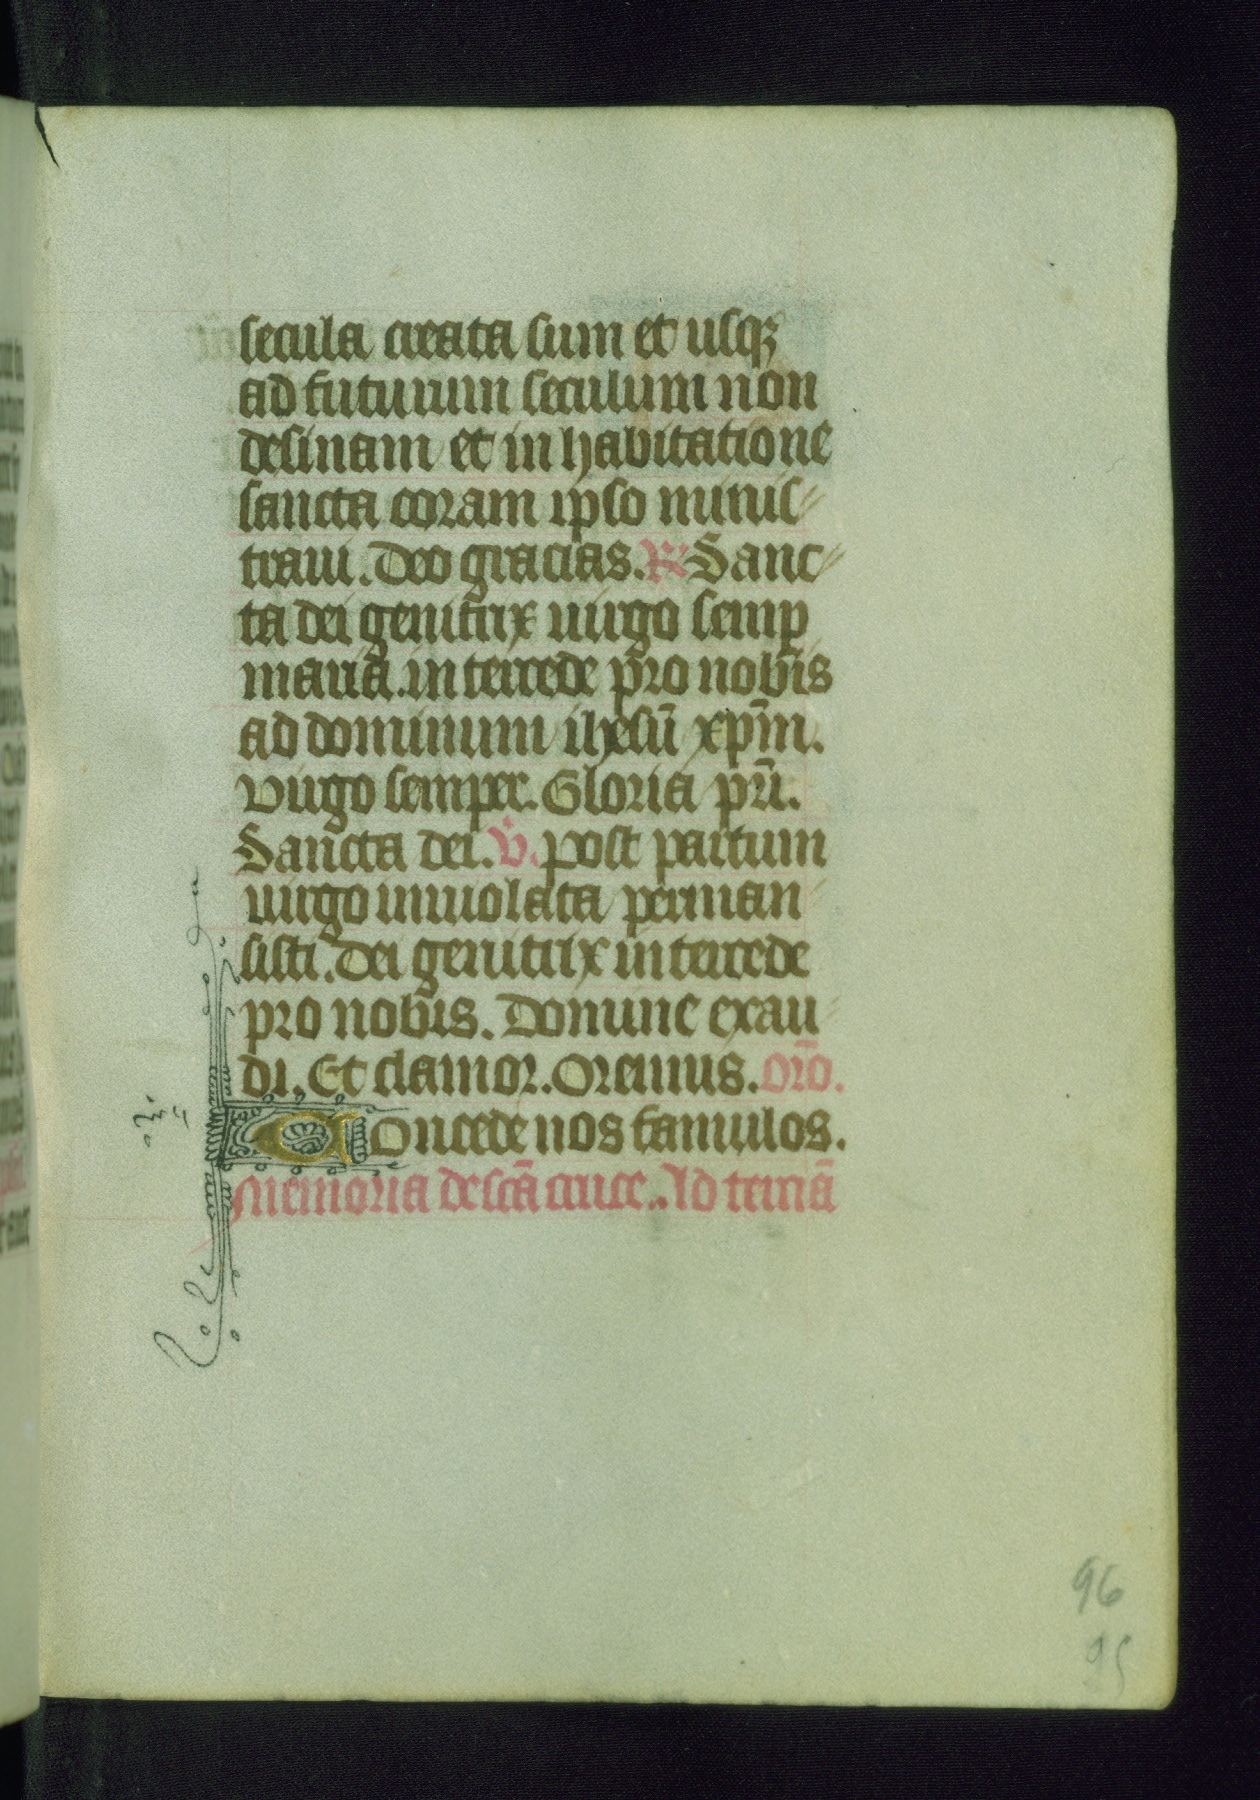 secula creata sum et usqꝫ
ad futurum seculum non
desinam et in habitatione
sancta coram ipso minis
traui. Deo gracias. ℟ Sanc
ta dei genitrix uirgo semꝑ
maria. intercede pro nobis
ad dominum ihesū xp̄m.
Uirgo semper. Gloria pr̄i.
Sancta dei. ℣. post partum
uirgo inuiolata perman
sisti. Dei genitrix intercede
pro nobis. Domine exau
di. Et clamor. Oremus. Orō.
Concede nos famulos.
Memoria de scā cruce. Ad terciā
96
95